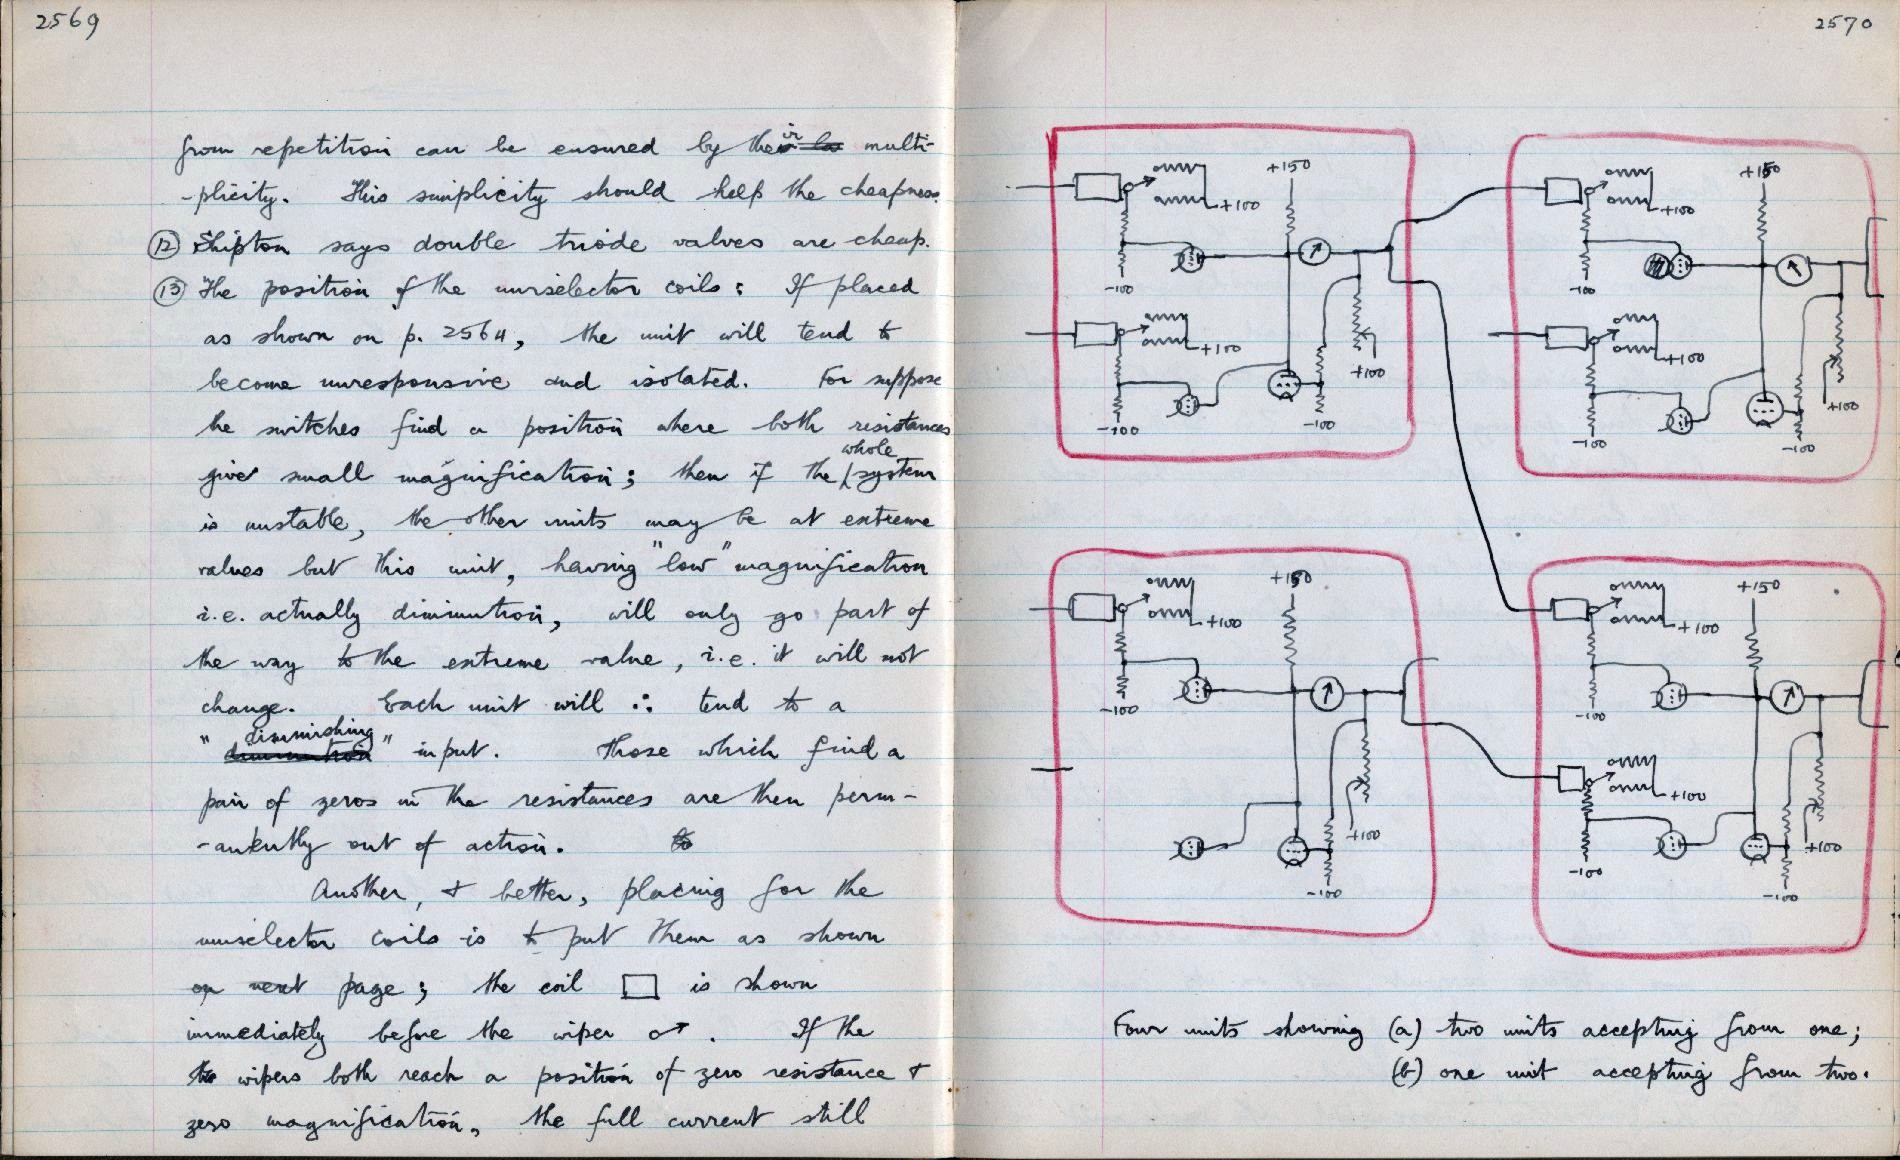 2569
from repetition can be ensured by their multi-
-plicity. This simplicity should help the cheapness.
(12) Shipton says double triode valves are cheap.
(13) The position of the uniselector coils: If placed
as shown on p. 2564, the unit will tend to
become unresponsive and isolated. For suppose
he switches find a position where both resistances
give small magnification; then if the whole system
is unstable, the other units may be at extreme
values but this unit, having "low" magnification
i.e. actually diminution, will only go part of
the way to the extreme value, i.e. it will not
change. Each unit will ∴ tend to a
"diminishing" input. Those which find a
pair of zeros in the resistances are then perm-
-anently out of action.
Another, & better, placing for the
uniselector coils is to put them as shown
on next page; the coil □ is shown
immediately before the wiper o↗. If the
two wipers both reach a position of zero resistance &
zero magnification, the full current still
2570
+150
+100
-100
+100
+100
-100
-100
+150
+100
-100
+100
+100
-100
-100
+150
+100
-100
+100
-100
+150
+100
-100
+100
+100
-100
-100
Four units showing (a) two units accepting from one;
(b) one unit accepting from two.